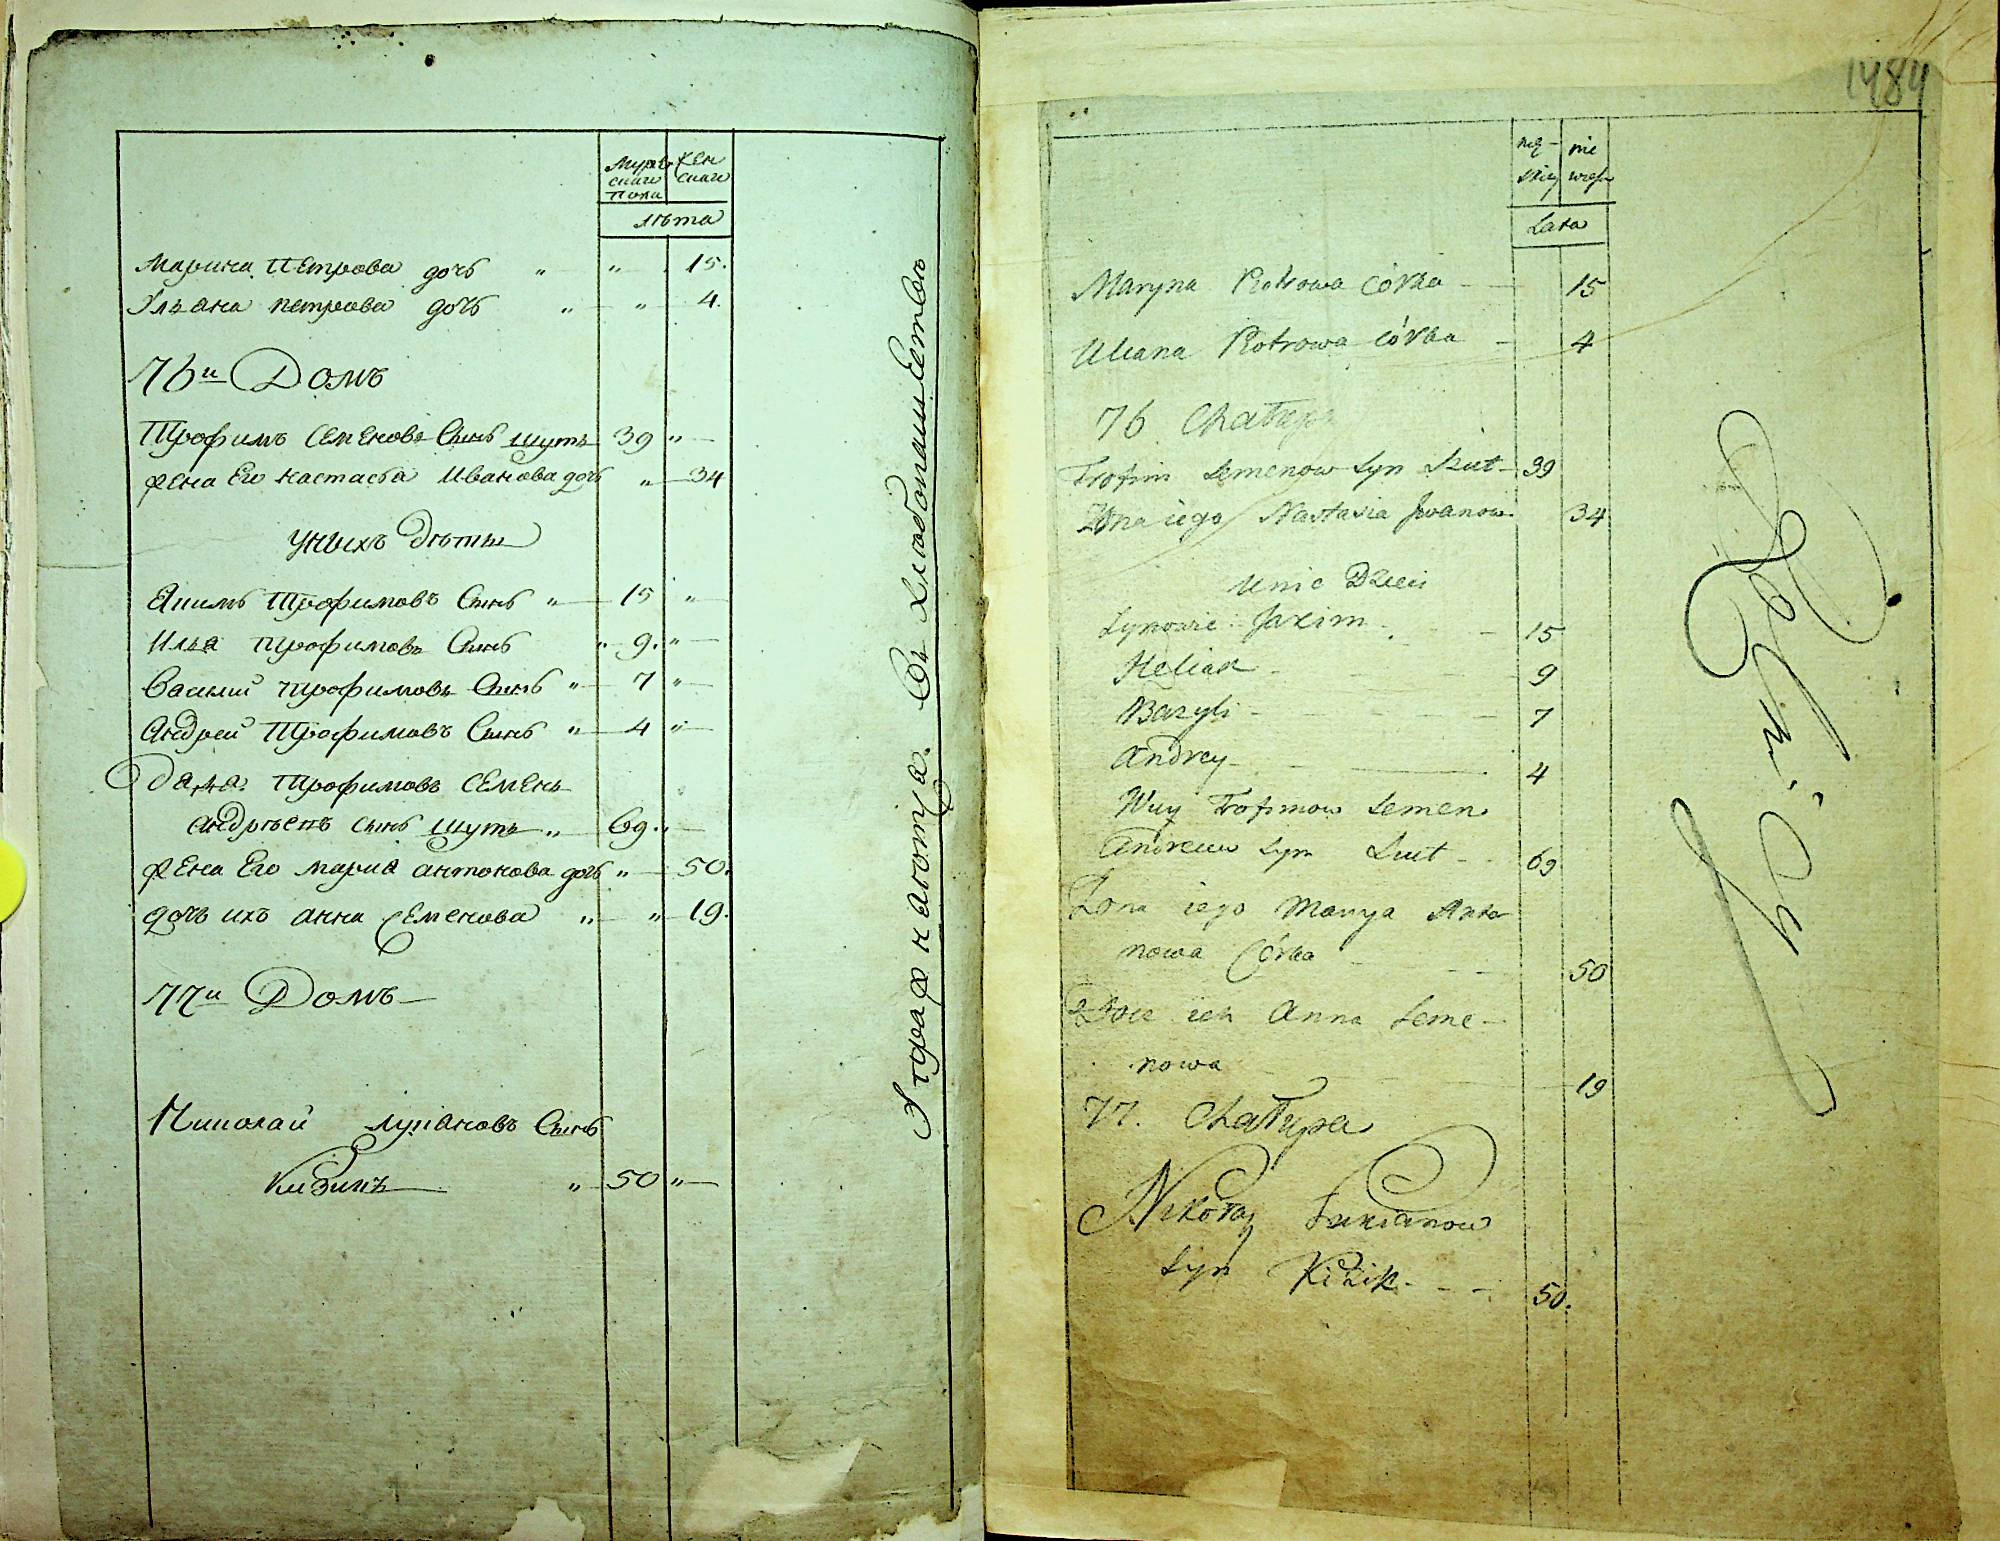 Мужескаго пола
Женскаго
лѣта
Марина Петрова дочь " " 15.
Ульяна петрова дочь " " 4.
76й Домъ
Трофимъ Семеновъ Сынъ шутъ 39 "
жена Его настасья Иванова дочь " 34
уныхъ дѣти
Якимъ Трофимовъ Сынъ " 15 "
Илья трофимовъ Сынъ " 9. "
Василий трофимовъ Сынъ " 7 "
Андрей Трофимовъ Сынъ " 4 "
Дядя Трофимовъ Семенъ
андрѣевъ сынъ шутъ " 69. "
жена Его мария антонова дочь " 50.
дочь ихъ анна Семенова " " 19.
77й Домъ
Николай лукяновъ Сынъ
Кизикъ " 50 "
въ хлѣбопашествѣ
1484
męskiey
Lata
Maryna Piotrowa córka 15
Uliana Piotrowa córka 4
76 Chałupa
Trofim Semenow Syn Szut 39
Żona iego Nastasia Iwanow. 34
Unic Dzieci
Synowie Jaxim 15
Heliasz 9
Bazyli 7
Andrey 4
Wuy Trofimow Semen
Andreiew Syn Szut 69
Żona iego Marya Anto
nowa Córka 50
ich Anna Seme-
nowa 19
77. Chałupa
Nikołay Łukianow
Syn Kizik 50.